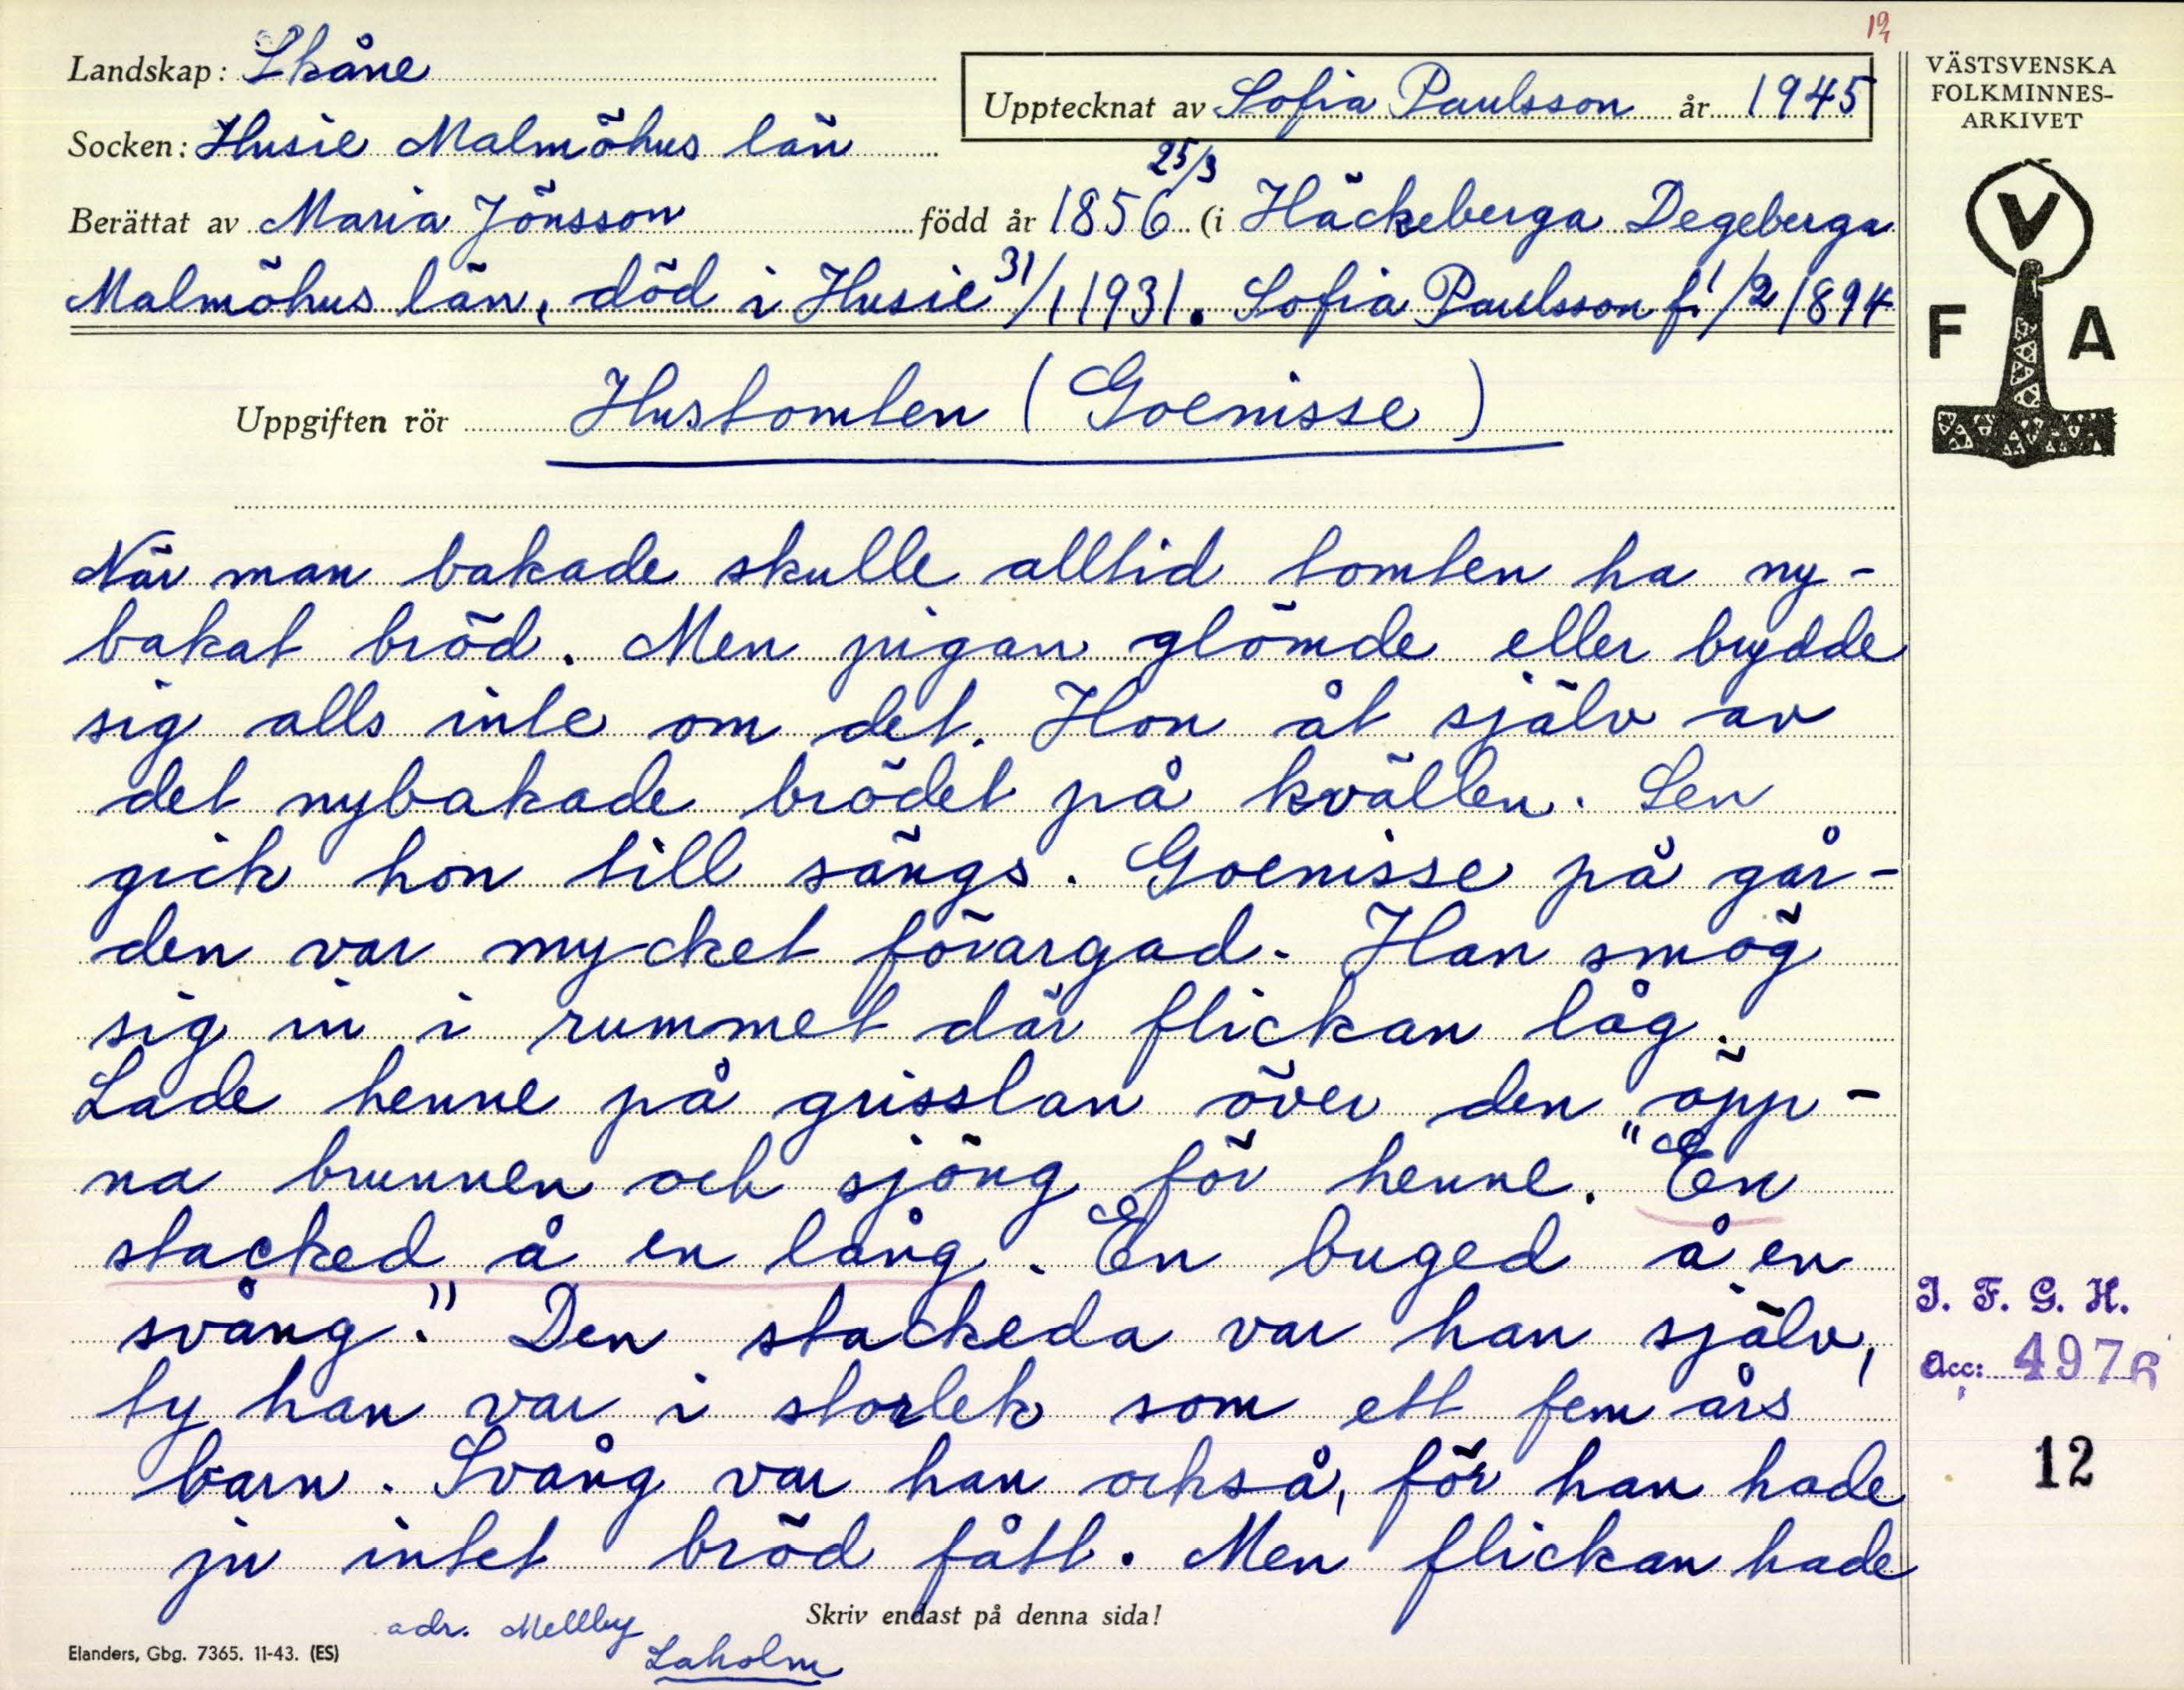 12
Landskap: Skåne
Upptecknat av Sofia Paulsson år 1945
Socken: Husie Malmöhus län
25/3
Berättat av Maria Jönsson född år 1856 (i Häckeberga Degeberga
Malmöhus län, död i Husie 31/1 1931. Sofia Paulsson f. 1/2 1894
Uppgiften rör Hustomten (Goenisse)
När man bakade skulle alltid tomten ha ny-
bakat bröd. Men pigan glömde eller brydde
sig alls inte om det. Hon åt själv av
det nybakade brödet på kvällen. Sen
gick hon till sängs. Goenisse på går-
den var mycket förargad. Han smög
sig in i rummet där flickan låg.
Lade henne på grisslan över den öpp-
na brunnen och sjöng för henne. "En
stacked å en lång. En buged å en
svång." Den stackeda var han själv,
ty han var i storlek som ett fem års
barn. Svång var han också, för han hade
ju intet bröd fått. Men flickan hade
Skriv endast på denna sida!
adr. Mellby
Laholm
Elanders, Gbg. 7365. 11-43. (ES)
VÄSTSVENSKA
FOLKMINNES-
ARKIVET
V
F A
I. F. G. H.
Acc: 4976
12